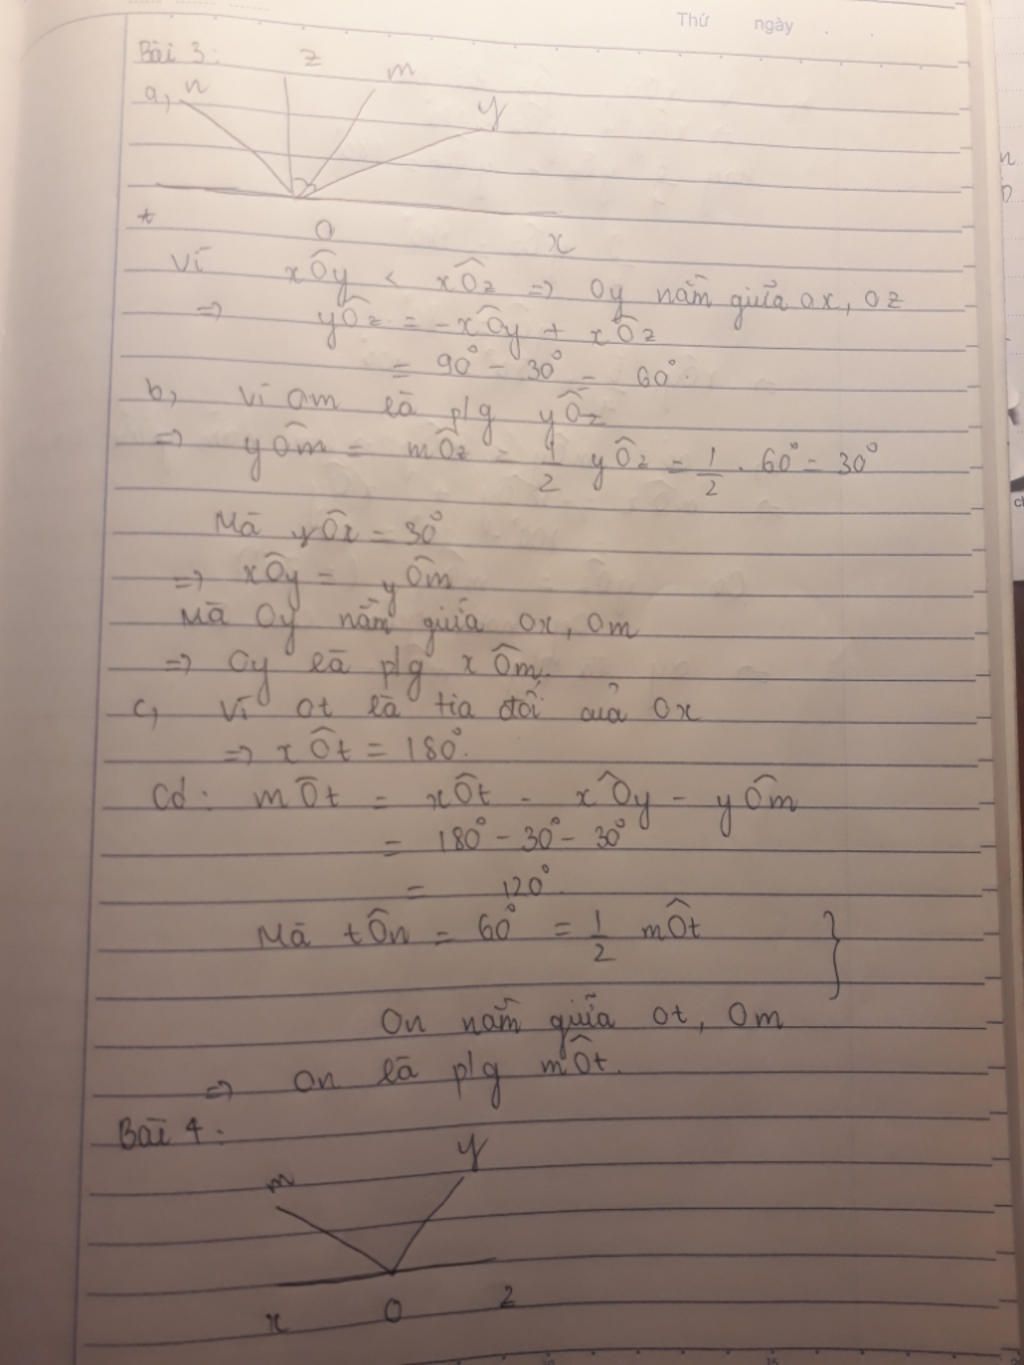 Thứ ngày
Bài 3:
z m
a, n y
t
O x
Vì xÔy < xÔz => Oy nằm giữa Ox, Oz
=> yÔz = -xÔy + xÔz
= 90° - 30° = 60°.
b, Vì Om là p/g yÔz
=> yÔm = mÔz = 1/2 yÔz = 1/2 . 60° = 30°
Mà yÔx = 30°
=> xÔy = yÔm
Mà Oy nằm giữa Ox, Om
=> Oy là p/g xÔm.
c, Vì Ot là tia đối của Ox
=> xÔt = 180°.
Có: mÔt = xÔt - xÔy - yÔm
= 180° - 30° - 30°
= 120°.
Mà tÔn = 60° = 1/2 mÔt }
On nằm giữa Ot, Om
=> On là p/g mÔt.
Bài 4:
y
m
x O z